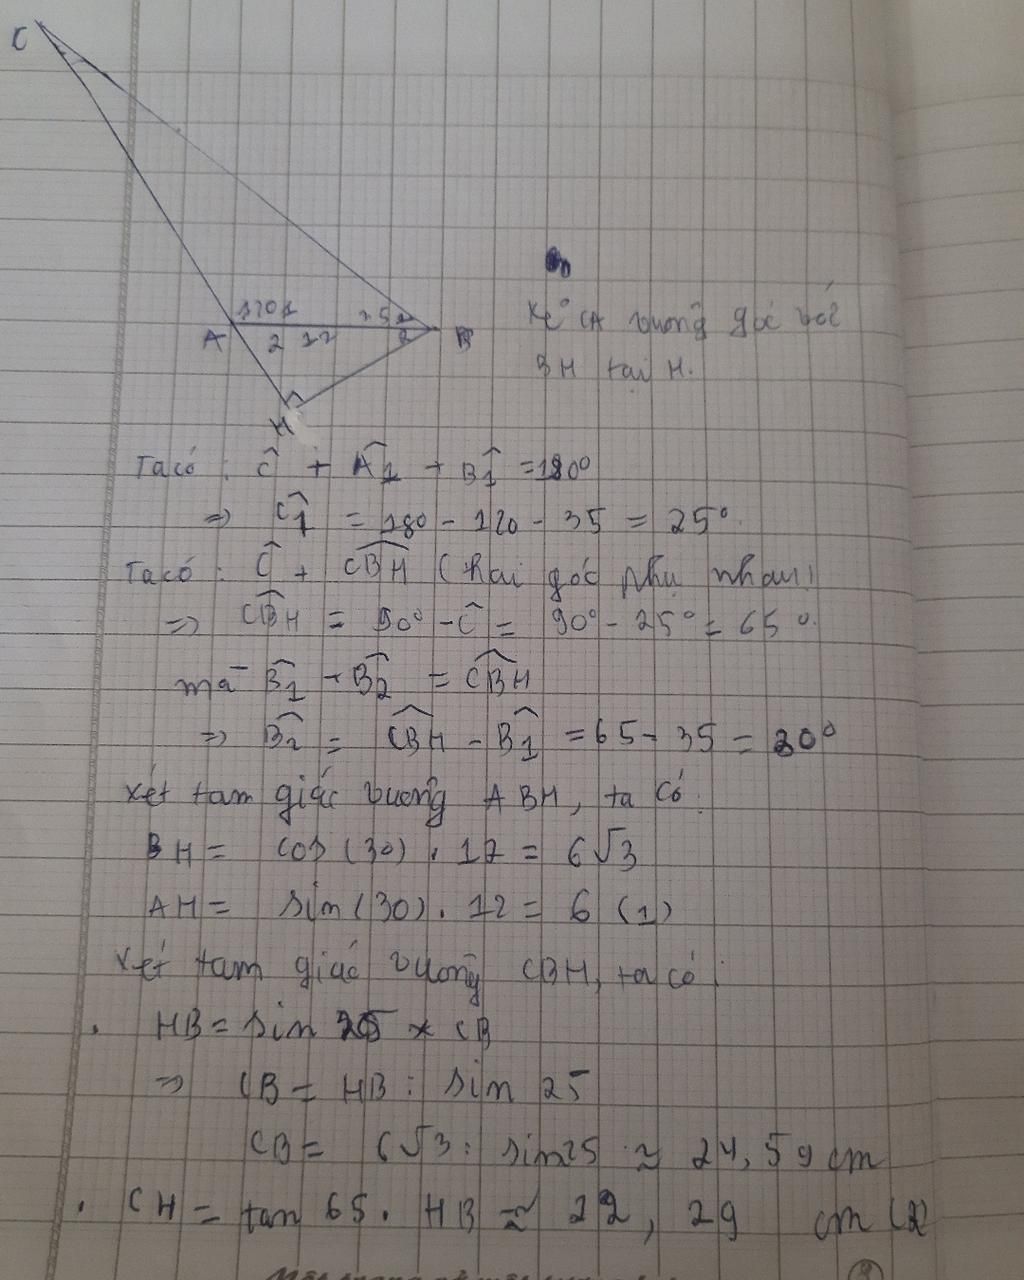 C
120 1
35 1
A
2
12
2
B
H
Kẻ CA vuông góc với
BH tại H.
Ta có : Ĉ + Â1 + B̂1 = 180°
=> Ĉ1 = 180 - 120 - 35 = 25°.
Ta có : Ĉ + CBH (hai góc phụ nhau)
=> CBH = 90° - Ĉ = 90° - 25° = 65°.
mà B̂1 + B̂2 = CBH
=> B̂2 = CBH - B̂1 = 65 - 35 = 30°
Xét tam giác vuông ABH, ta có :
BH = cos (30) . 12 = 6√3
AH = sin (30) . 12 = 6 (1)
Xét tam giác vuông CBH, ta có :
. HB = sin 25 * CB
=> CB = HB : sin 25
CB = 6√3 : sin25 ≈ 24,59 cm
. CH = tan 65 . HB ≈ 22,29 cm (2)